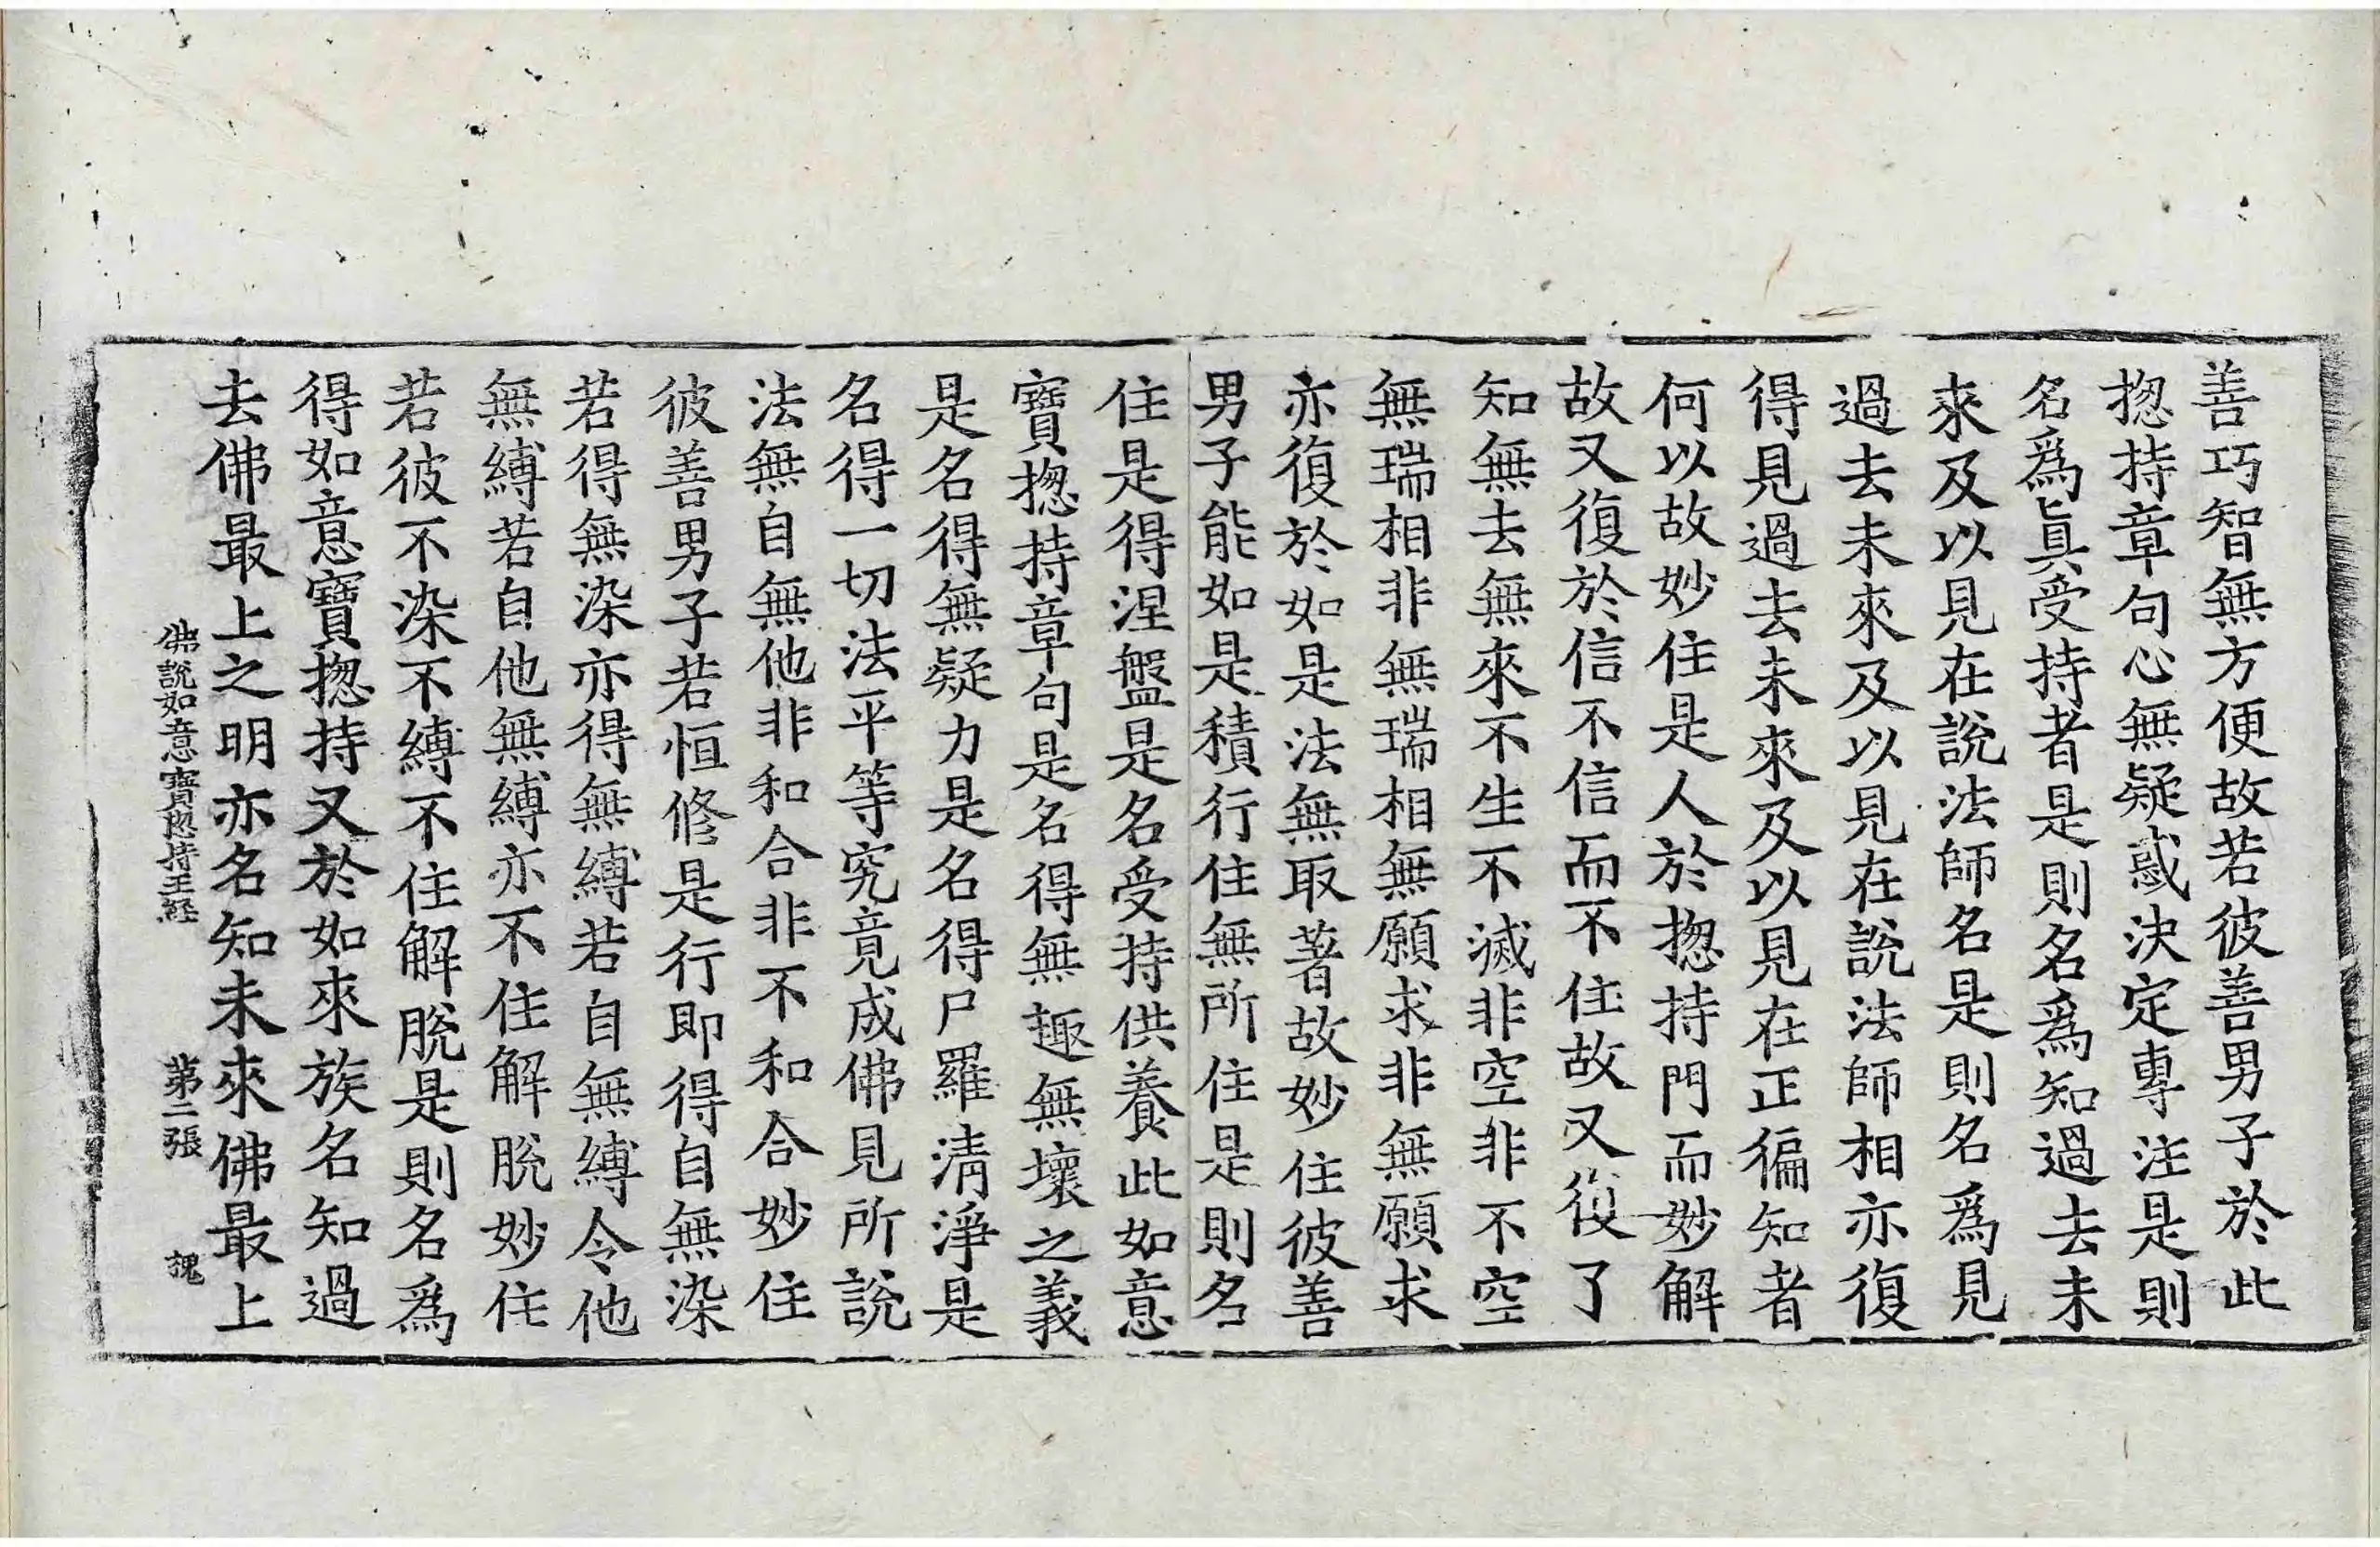 善巧智無方便故若彼善男子於此
揔持章句心無疑惑決定專注是則
名爲眞受持者是則名爲知過去未
來及以見在說法師名是則名爲見
過去未來及以見在說法師相亦復
得見過去未來及以見在正徧知者
何以故妙住是人於揔持門而妙解
故又復於信不信而不住故又復了
知無去無來不生不滅非空非不空
無瑞相非無瑞相無願求非無願求
亦復於如是法無取著故妙住彼善
男子能如是積行住無所住是則名
住是得涅盤是名受持供養此如意
寶揔持章句是名得無趣無壞之義
是名得無疑力是名得尸羅清淨是
名得一切法平等究竟成佛見所說
法無自無他非和合非不和合妙住
彼善男子若恒修是行即得自無染
若得無染亦得無縛若自無縛令他
無縛若自他無縛亦不住解脫妙住
若彼不染不縛不住解脫是則名爲
得如意寶揔持又於如來族名知過
去佛最上之明亦名知未來佛最上
佛說如意寶揔持王經 第二張 槐